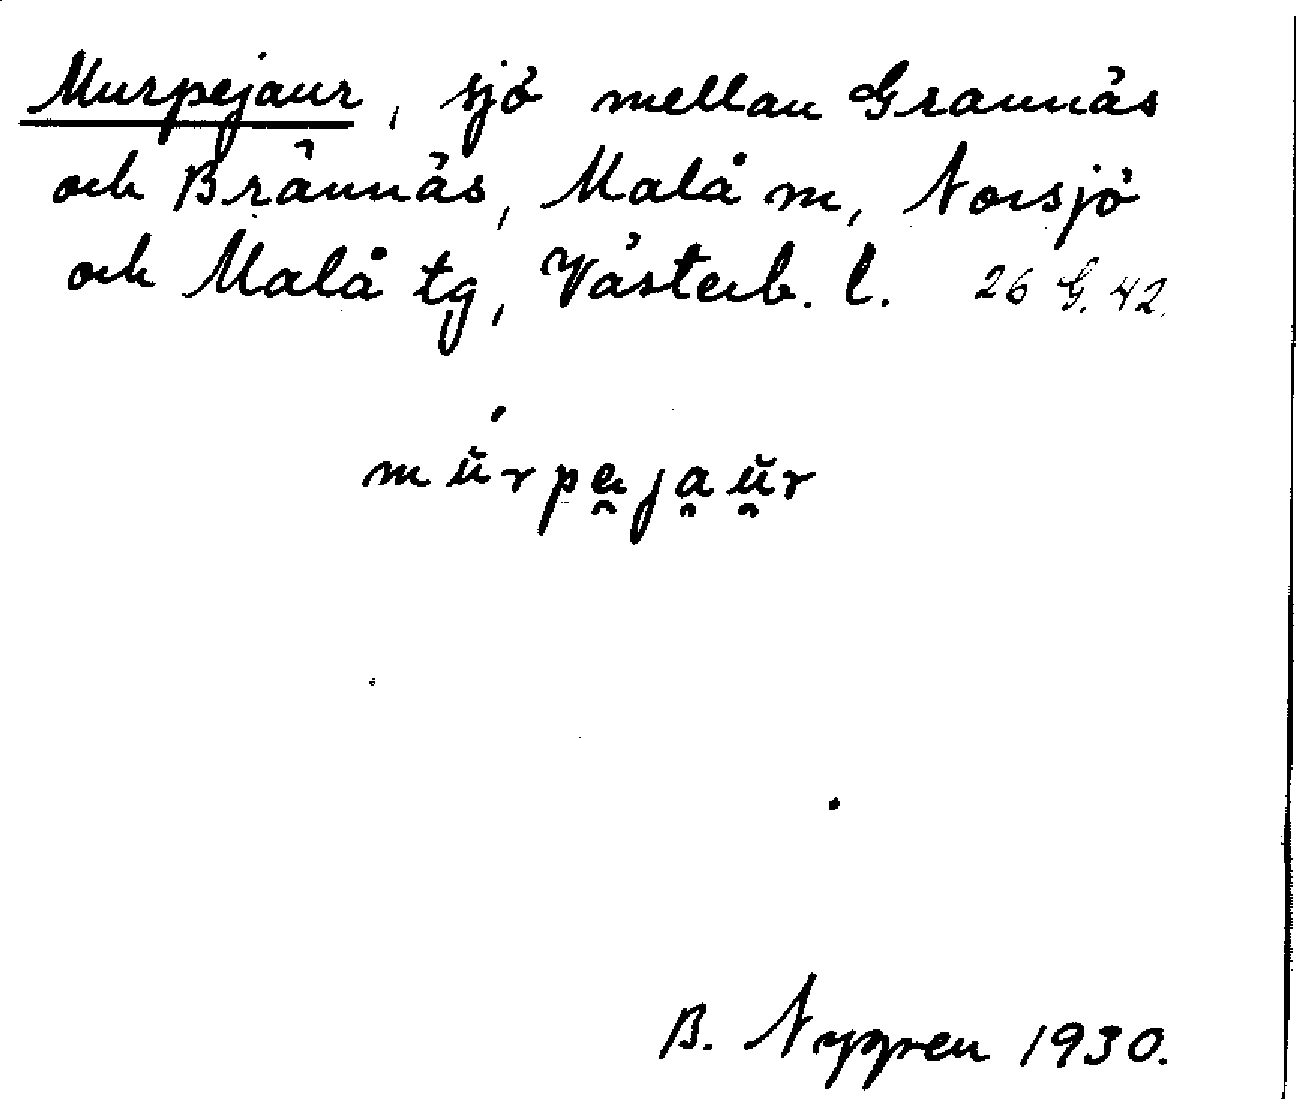 Murpejaur, sjö mellan Grannäs
och Brännäs, Malå m, Norsjö
och Malå tg, Västerb. l. 26 G. 42.
mŭ́rpe̯ja̯ŭ̯r
B. Nygren 1930.